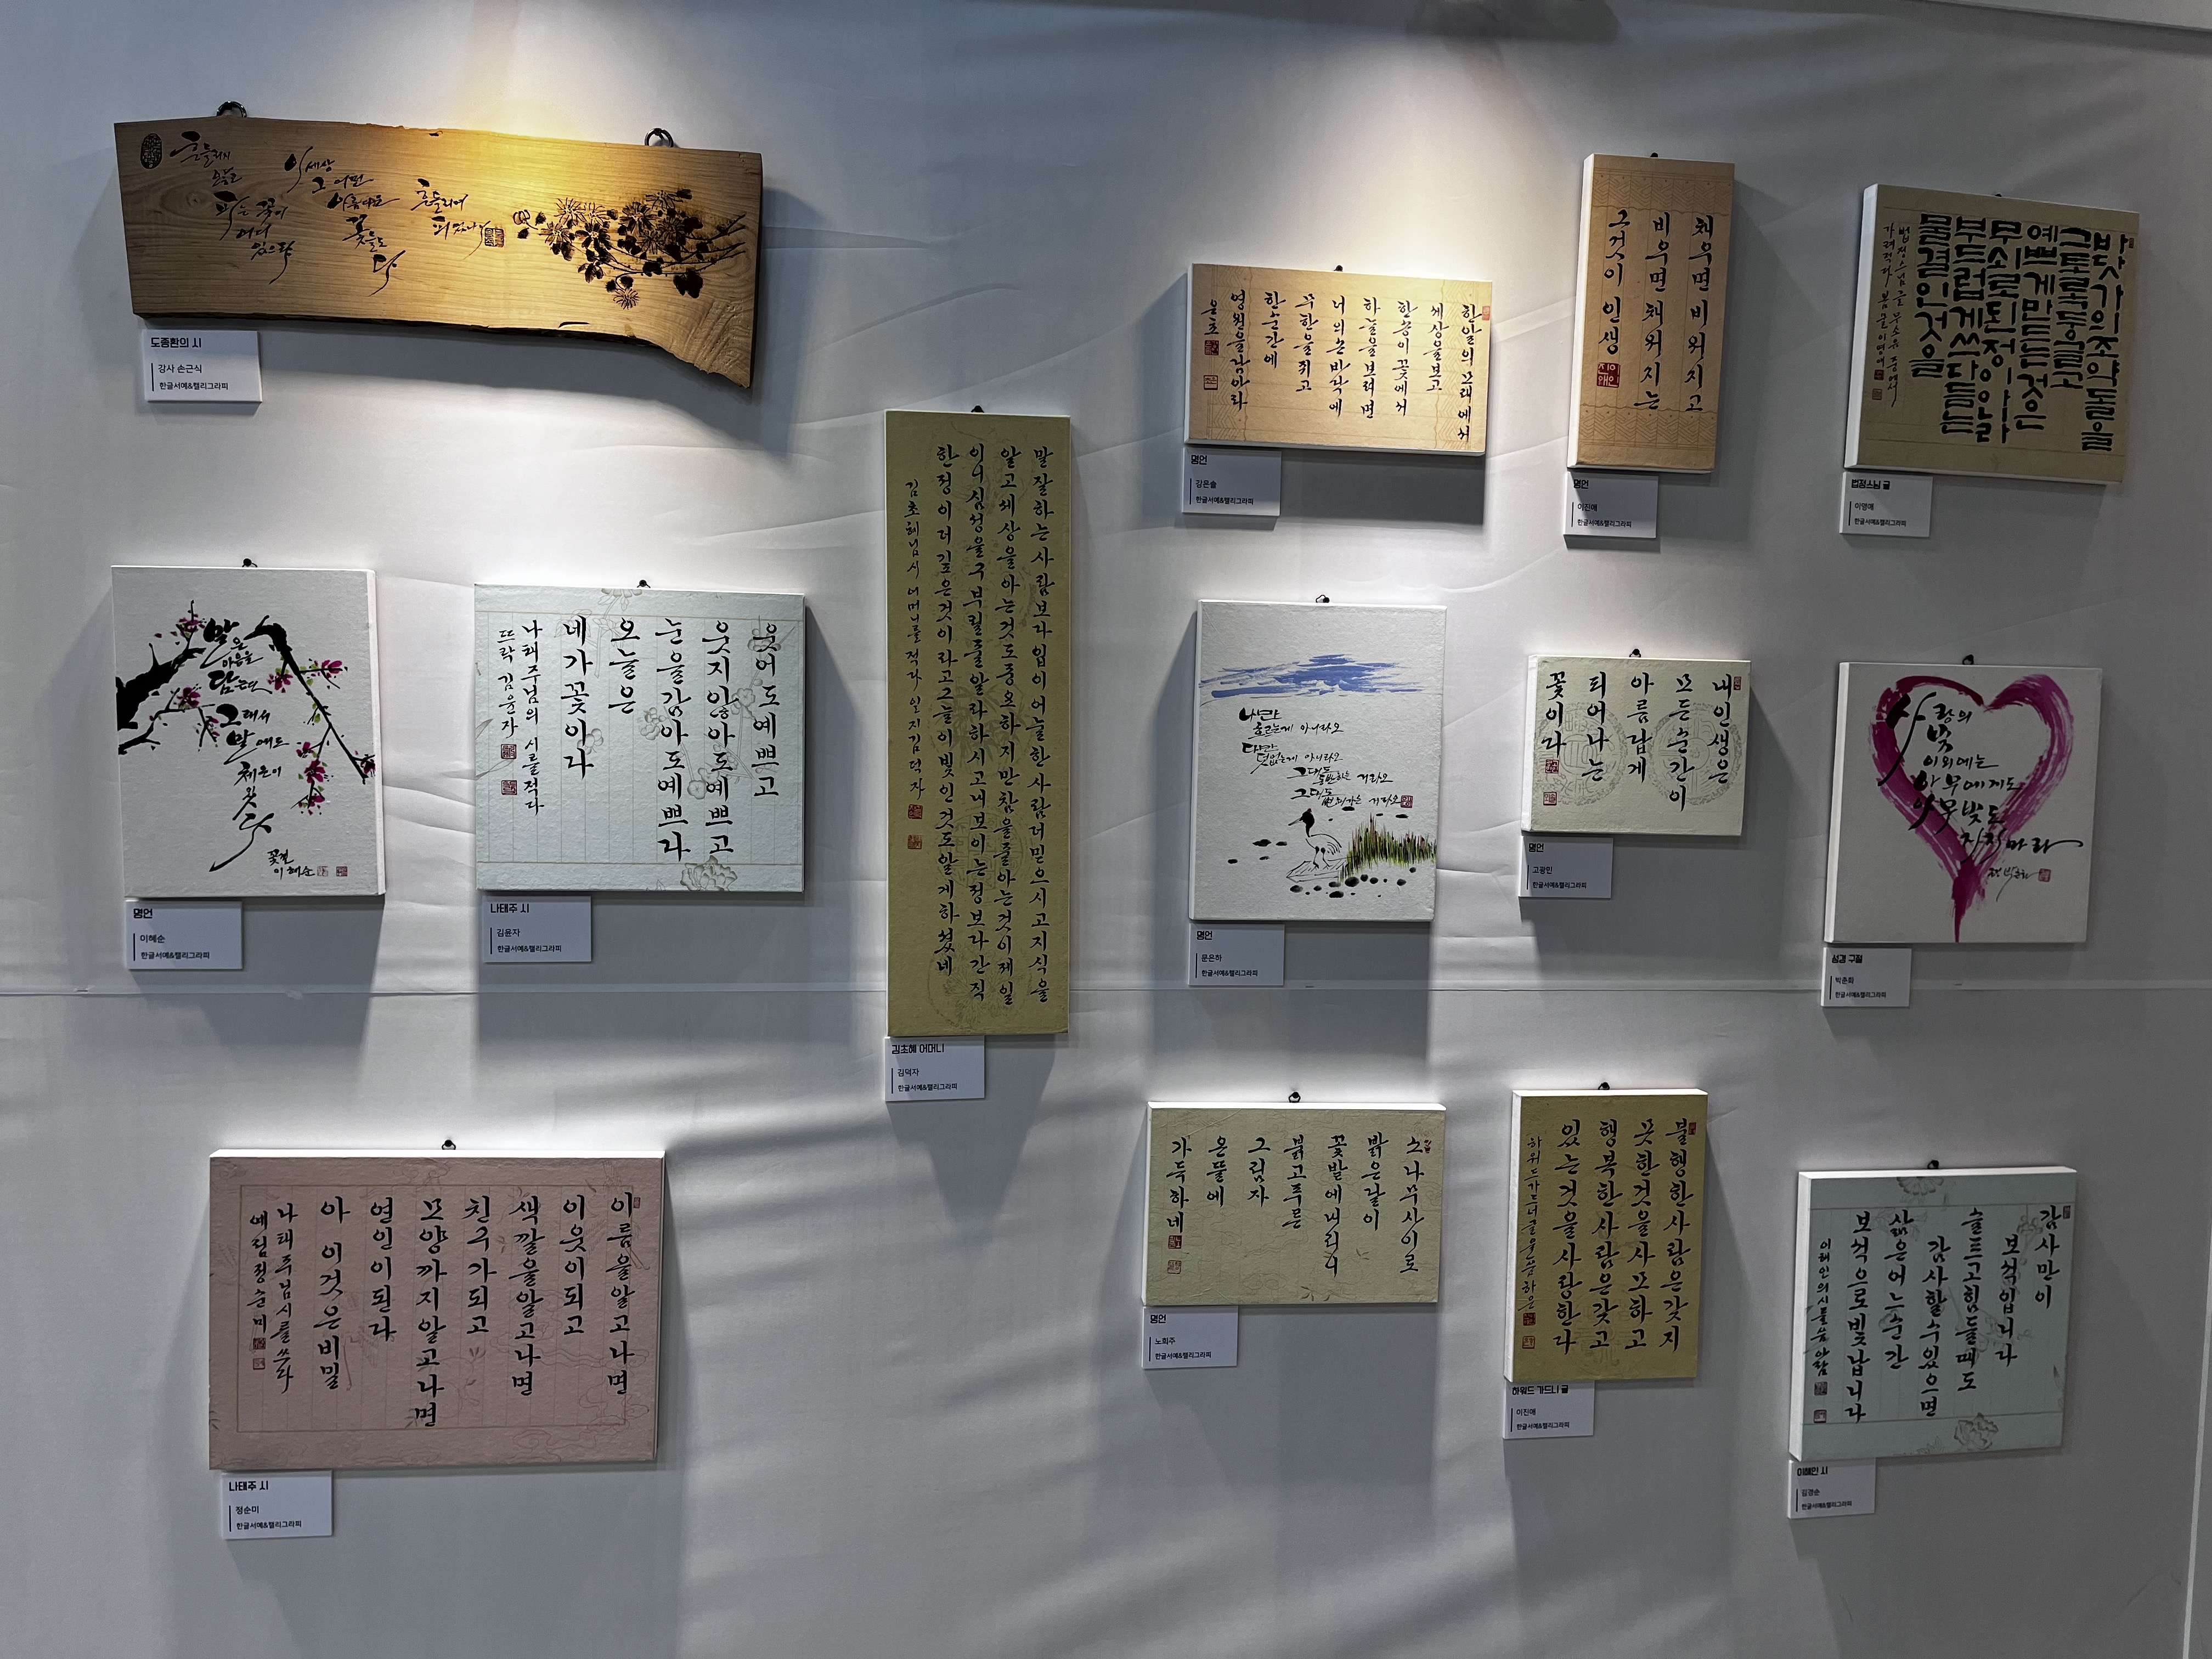 흔들리지
않고
피는 꽃이
어디
있으랴
이 세상
그 어떤
아름다운
꽃들도
다
흔들리며
피었나니
도종환의 시
강사 손근식
한글서예&캘리그라피
한알의 모래에서
세상을 보고
한송이 꽃에서
하늘을 보려면
너의 손바닥에
무한을 쥐고
한순간에
영원을 담아라
은초
명언
강은솔
한글서예&캘리그라피
채우면 비워지고
비우면 채워지는
그것이 인생
명언
이진애
한글서예&캘리그라피
바닷가의 조약돌을
그토록 둥글고
예쁘게 만든 것은
무쇠로 된 정이 아니라
부드럽게 쓰다듬는
물결인 것을
법정스님 글 무소유 중에서
가려적다 봄글 이명애
법정스님 글
이명애
한글서예&캘리그라피
말은
마음을
담는다
그래서
말에도
체온이
있다
꽃결
이혜순
명언
이혜순
한글서예&캘리그라피
웃어도 예쁘고
웃지 않아도 예쁘고
눈을 감아도 예쁘다
오늘은
네가 꽃이다
나태주님의 시를 적다
뜨락 김윤자
나태주 시
김윤자
한글서예&캘리그라피
말 잘하는 사람보다 입이 어눌한 사람 더 믿으시고 지식을
알고 세상을 아는 것도 중요하지만 참을 줄 아는 것이 제일
이니 심성을 구부릴 줄 알라 하시고 내보이는 정보다 간직
한 정이 더 깊은 것이라고 그늘이 빛인 것도 알게 하셨네
김초혜님 시 어머니를 적다 일지 김덕자
김초혜 어머니
김덕자
한글서예&캘리그라피
나만
흐르는게 아니라오
다만
덧없는게 아니라오
그대도
그대도
명언
문은하
한글서예&캘리그라피
내 인생은
모든 순간이
아름답게
피어나는
꽃이다
명언
고광민
한글서예&캘리그라피
사랑의
빚
이외에는
아무에게도
아무 빚도
지지 마라
성경 구절
박춘희
한글서예&캘리그라피
이름을 알고 나면
이웃이 되고
색깔을 알고 나면
친구가 되고
모양까지 알고 나면
연인이 된다
아 이것은 비밀
나태주님 시를 쓰다
예림 정순미
나태주 시
정순미
한글서예&캘리그라피
소나무 사이로
밝은 달이
꽃밭에 내리니
붉고 푸른
그림자
온 뜰에
가득하네
명언
노희주
한글서예&캘리그라피
불행한 사람은 갖지
못한 것을 사모하고
행복한 사람은 갖고
있는 것을 사랑한다
하워드 가드너 글
하워드 가드너 글
이진애
한글서예&캘리그라피
감사만이
보석입니다
슬프고 힘들때도
감사할 수 있으면
삶은 어느 순간
보석으로 빛납니다
이해인의 시를
이해인 시
김경순
한글서예&캘리그라피